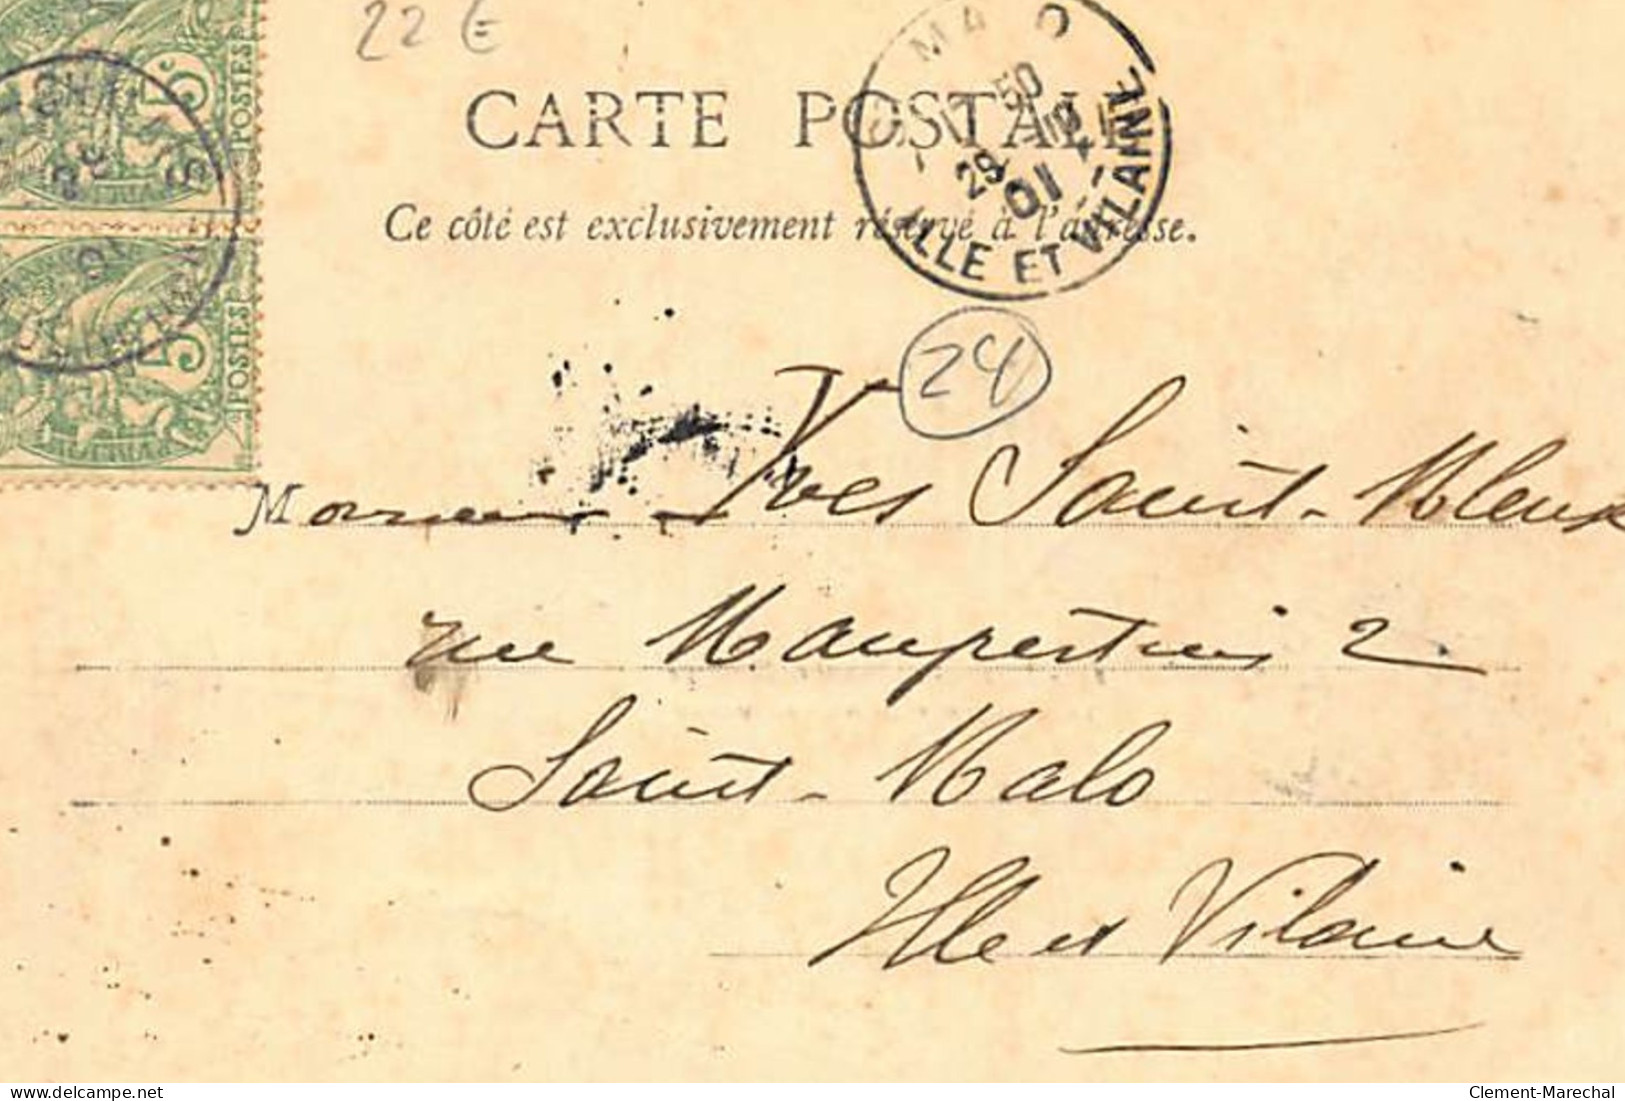 22 €
5c
POSTES
5c
POSTES
CARTE POSTALE
MALO
50
29
01
ILLE ET VILAINE
Ce côté est exclusivement réservé à l'adresse.
24
Monsieur Yves Saint-Mleux
rue Maupertuis 2
Saint-Malo
Ille et Vilaine
delcampe.net
Clement-Marechal